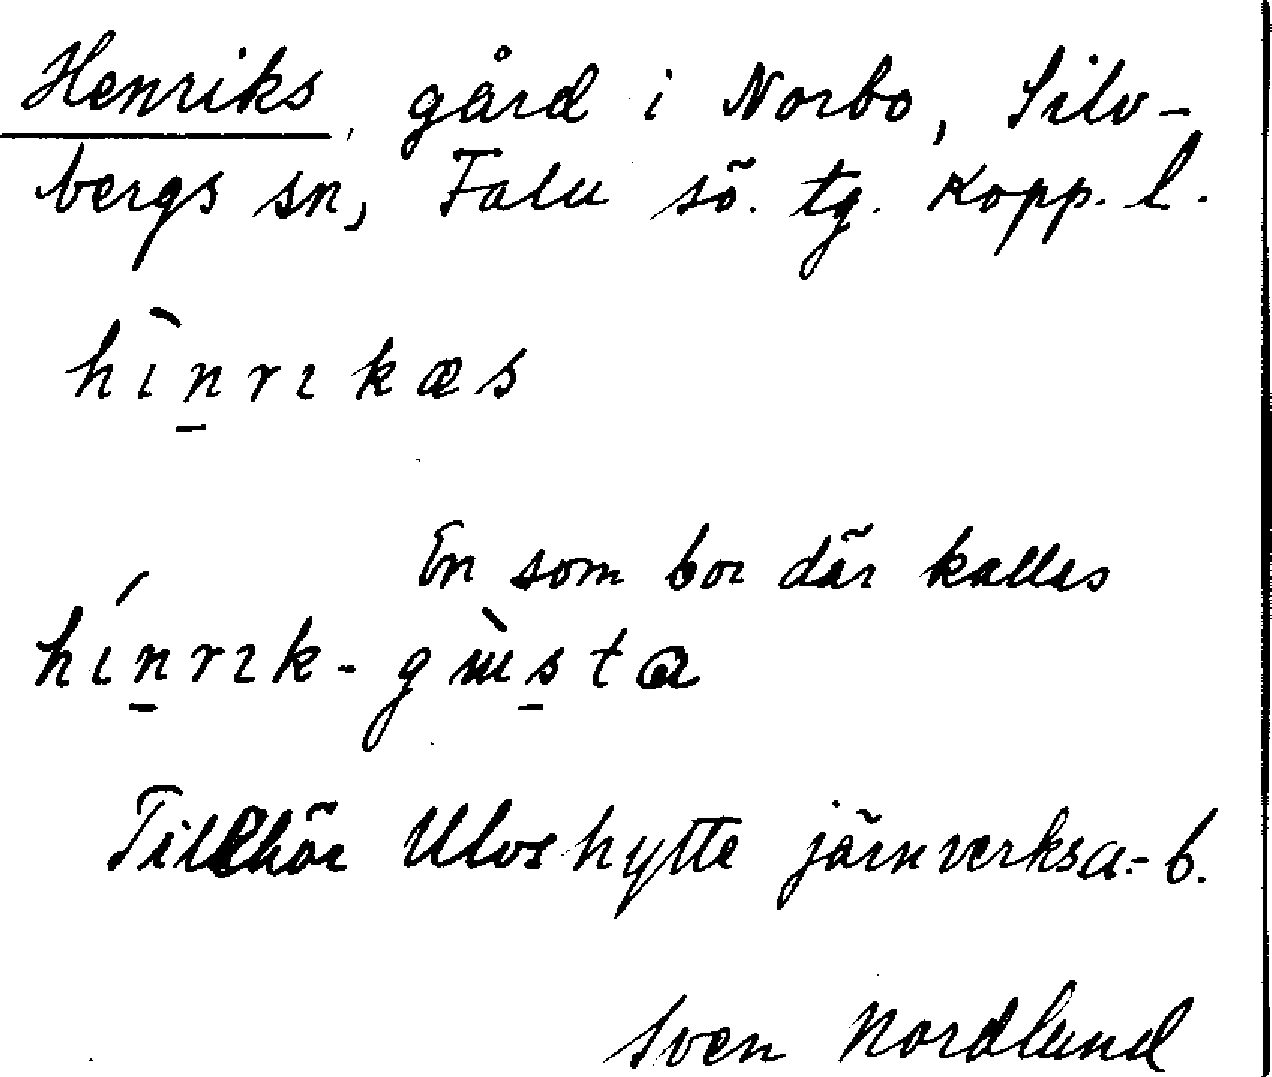 Henriks, gård i Norbo, Silv-
bergs sn, Falu sö. tg. Kopp. l.
hìn̲rıkæs
En som bor där kallas
hín̲rık-gɯ̀s̲ta
Tillhör Ulvshytte järnverksa.-b.
Sven Nordlund